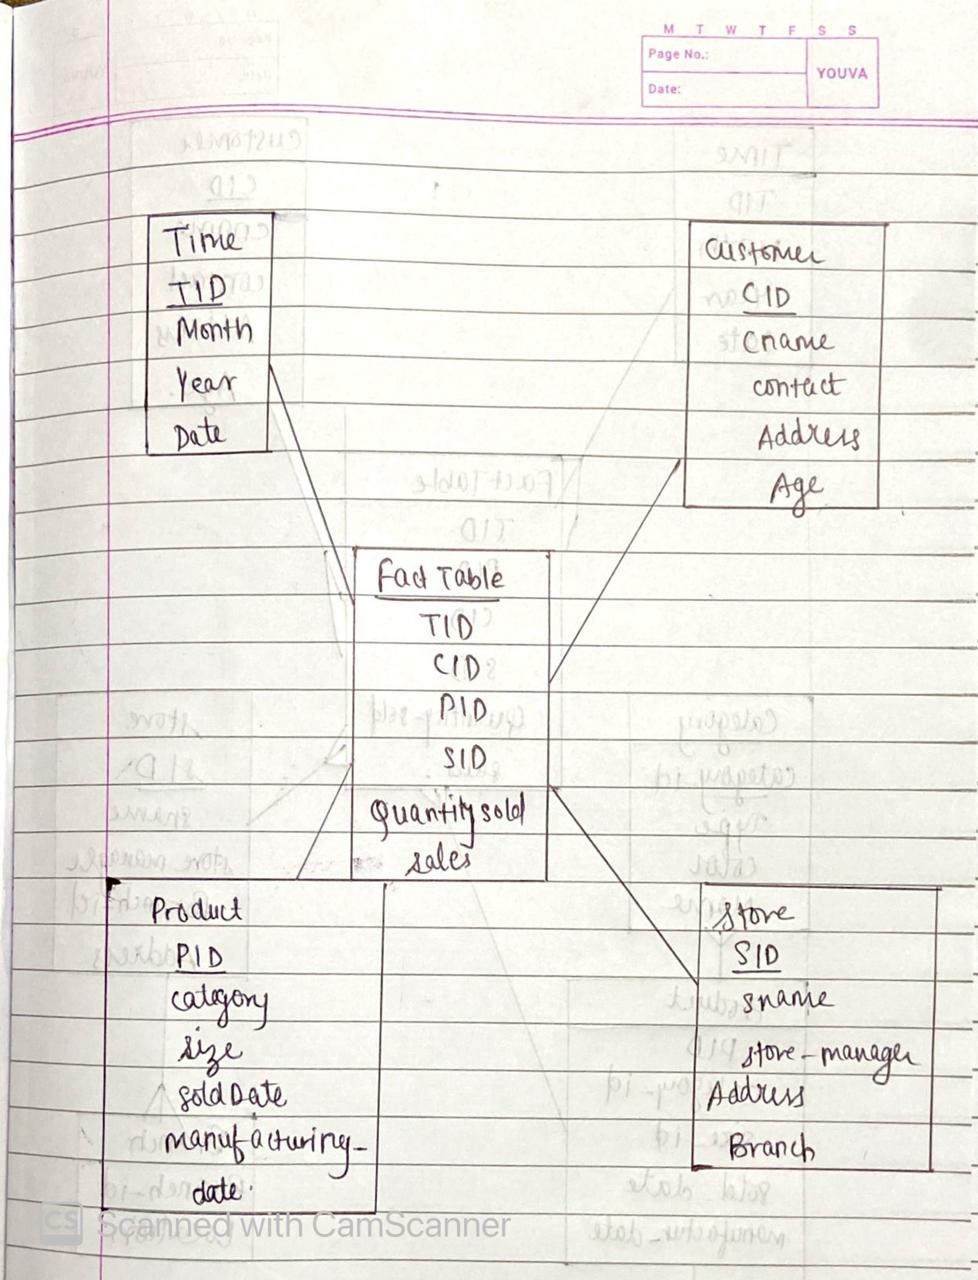 M T W T F S S
Page No.:
Date:
YOUVA
Time
TID
Month
Year
Date
Customer
CID
Cname
contact
Address
Age
Fact Table
TID
CID
PID
SID
Quantity sold
sales
Product
PID
category
size
sold Date
manufacturing-
date.
store
SID
sname
store-manager
Address
Branch
CS Scanned with CamScanner